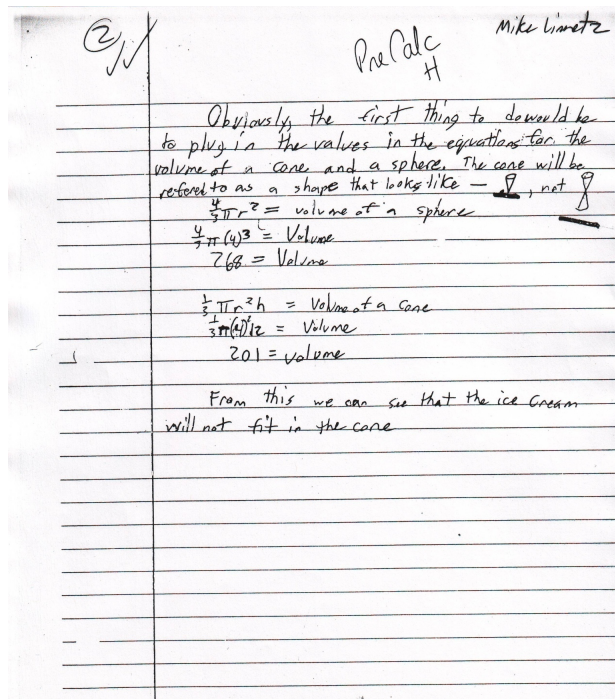 ②
Mike Limetz
Pre Calc
H
Obviously, the first thing to do would be
to plug in the values in the equations for the
volume of a cone and a sphere. The cone will be
refered to as a shape that looks like — , not
4/3 π r² = volume of a sphere
4/3 π (4)³ = Volume
268 = Volume
1/3 π r² h = Volume of a Cone
1/3 π (4)² 12 = Volume
201 = volume
From this we can see that the ice Cream
will not fit in the cone